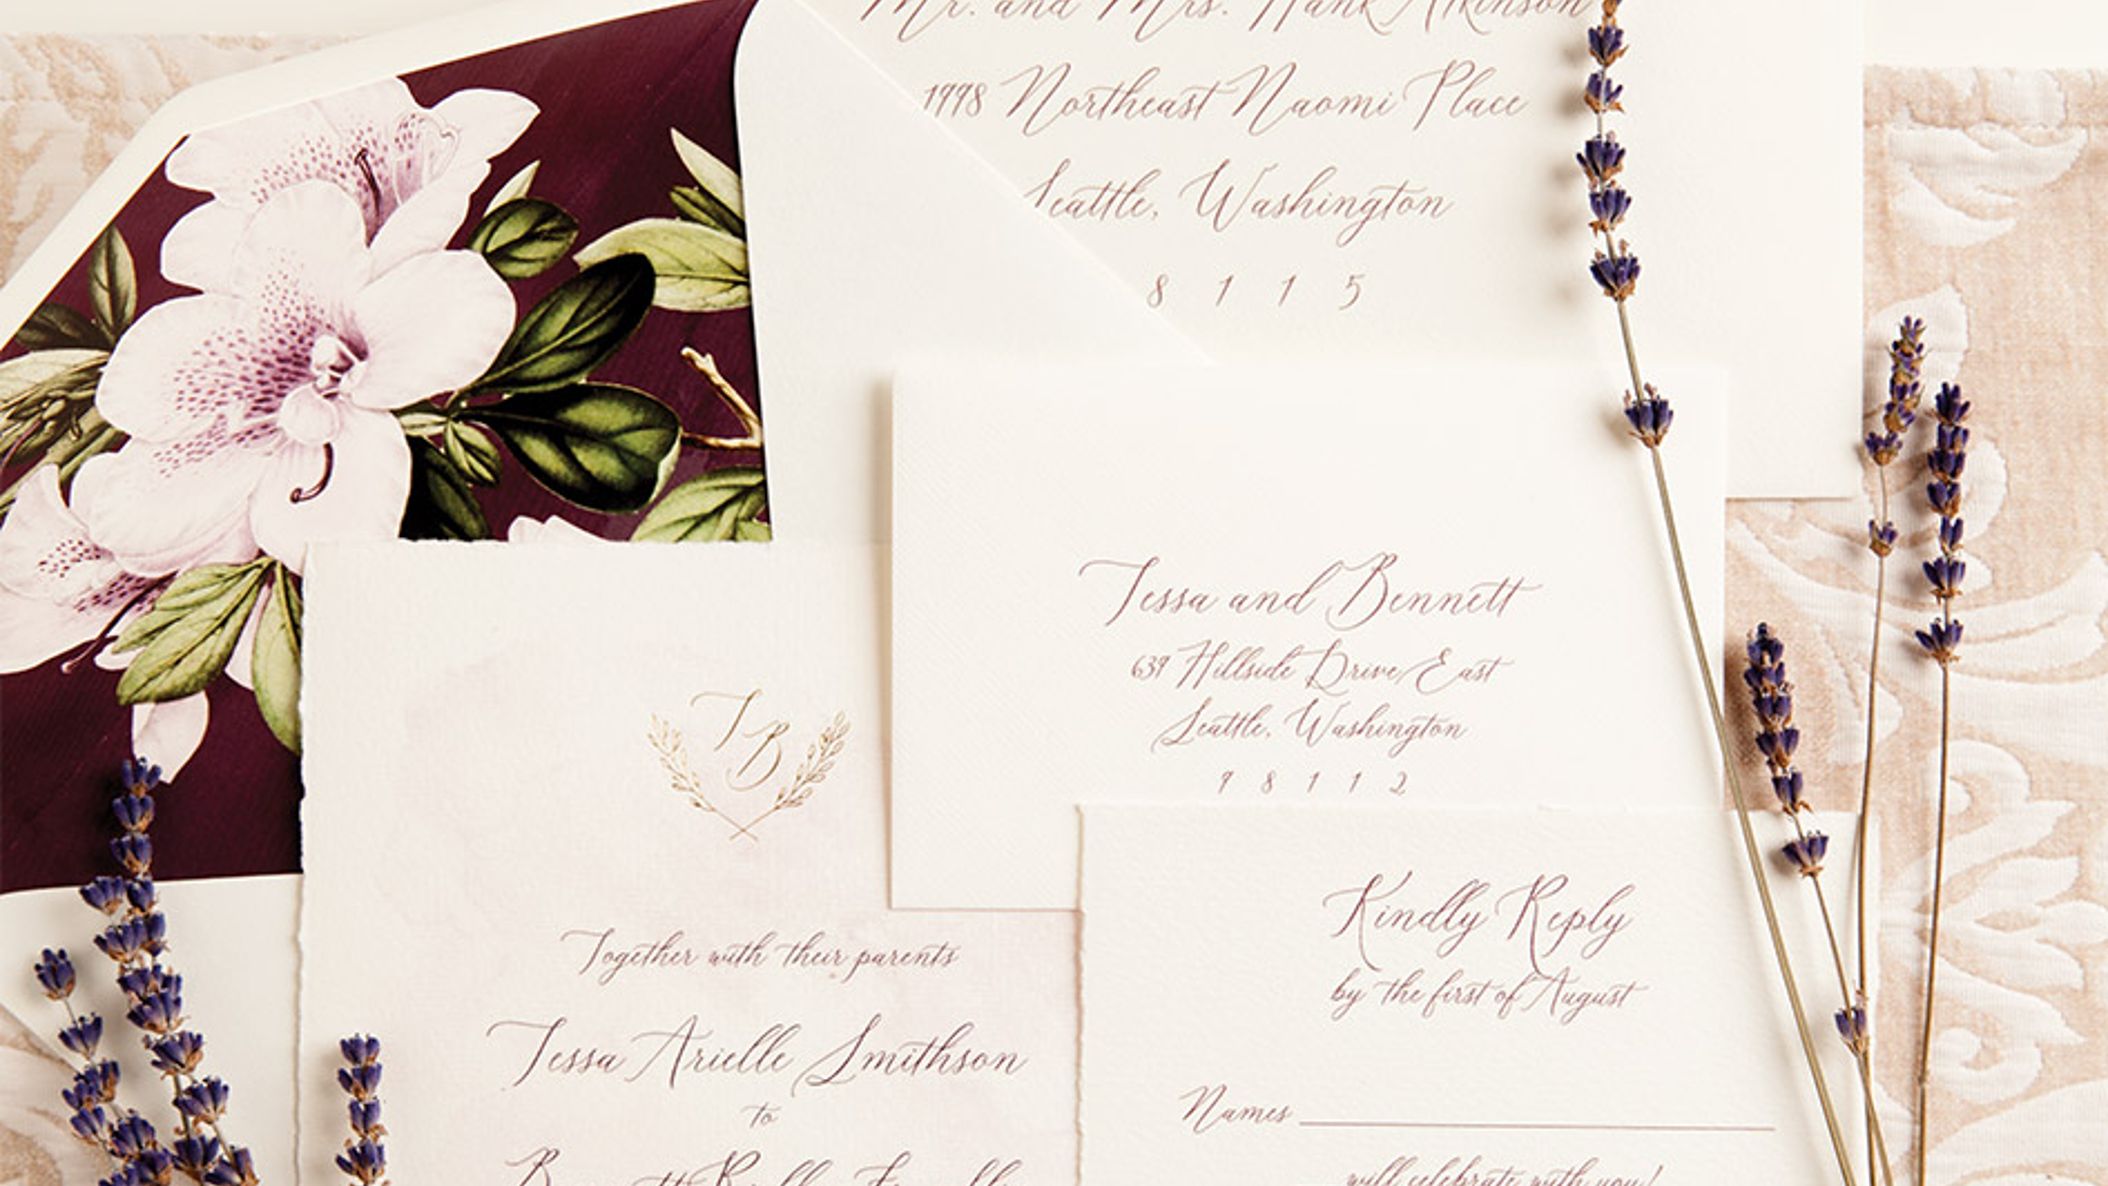 Mr. and Mrs. Hank Atkinson
1998 Northeast Naomi Place
Seattle, Washington
8 1 1 5
Tessa and Bennett
639 Hillside Drive East
Seattle, Washington
9 8 1 1 2
T B
Together with their parents
Tessa Arielle Smithson
to
Bennett
Kindly Reply
by the first of August
Names
will celebrate with you!